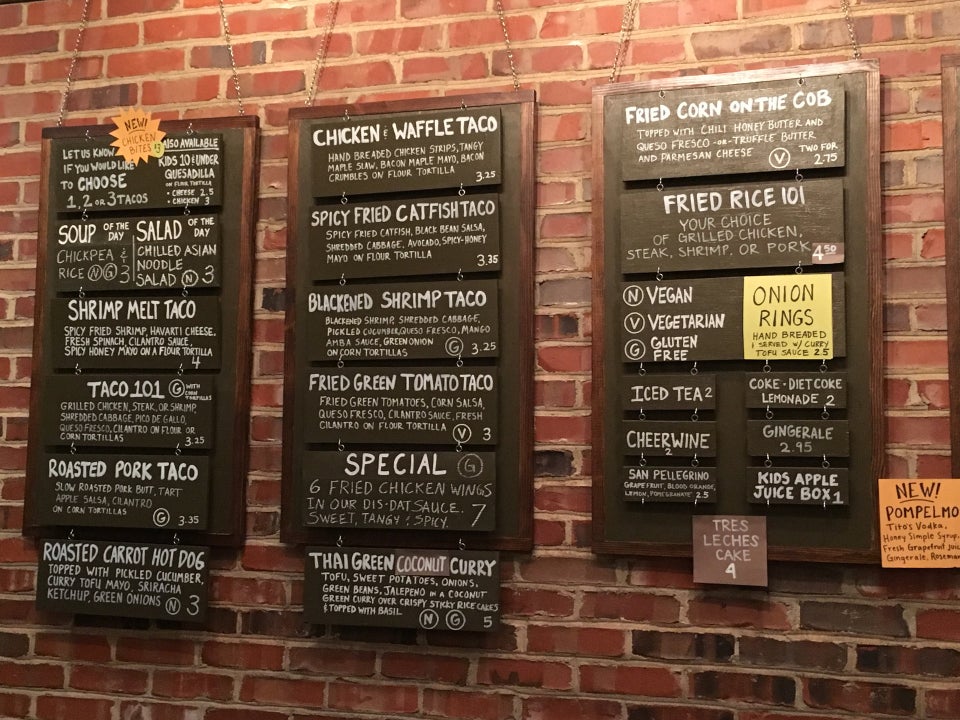 NEW!
CHICKEN
BITES $3
LET US KNOW
IF YOU WOULD LIKE
TO CHOOSE
1, 2 OR 3 TACOS
ALSO AVAILABLE
KIDS 10 & UNDER
QUESADILLA
ON FLOUR TORTILLA
• CHEESE 2.5
• CHICKEN 3
SOUP OF THE DAY
CHICKPEA &
RICE N G 3
SALAD OF THE DAY
CHILLED ASIAN
NOODLE
SALAD N 3
SHRIMP MELT TACO
SPICY FRIED SHRIMP, HAVARTI CHEESE,
FRESH SPINACH, CILANTRO SAUCE,
SPICY HONEY MAYO ON A FLOUR TORTILLA
4
TACO 101 G WITH CORN TORTILLAS
GRILLED CHICKEN, STEAK, OR SHRIMP,
SHREDDED CABBAGE, PICO DE GALLO,
QUESO FRESCO, CILANTRO ON FLOUR OR
CORN TORTILLAS 3.25
ROASTED PORK TACO
SLOW ROASTED PORK BUTT, TART
APPLE SALSA, CILANTRO
ON CORN TORTILLAS G 3.35
ROASTED CARROT HOT DOG
TOPPED WITH PICKLED CUCUMBER,
CURRY TOFU MAYO, SRIRACHA
KETCHUP, GREEN ONIONS N 3
CHICKEN & WAFFLE TACO
HAND BREADED CHICKEN STRIPS, TANGY
MAPLE SLAW, BACON MAPLE MAYO, BACON
CRUMBLES ON FLOUR TORTILLA 3.25
SPICY FRIED CATFISH TACO
SPICY FRIED CATFISH, BLACK BEAN SALSA,
SHREDDED CABBAGE, AVOCADO, SPICY-HONEY
MAYO ON FLOUR TORTILLA 3.35
BLACKENED SHRIMP TACO
BLACKENED SHRIMP, SHREDDED CABBAGE,
PICKLED CUCUMBER, QUESO FRESCO, MANGO
AMBA SAUCE, GREEN ONION
ON CORN TORTILLAS G 3.25
FRIED GREEN TOMATO TACO
FRIED GREEN TOMATOES, CORN SALSA,
QUESO FRESCO, CILANTRO SAUCE, FRESH
CILANTRO ON FLOUR TORTILLA V 3
SPECIAL G
6 FRIED CHICKEN WINGS
IN OUR DIS·DAT SAUCE.
SWEET, TANGY & SPICY. 7
THAI GREEN COCONUT CURRY
TOFU, SWEET POTATOES, ONIONS,
GREEN BEANS, JALEPENO IN A COCONUT
GREEN CURRY OVER CRISPY STICKY RICE CAKES
& TOPPED WITH BASIL N G 5
FRIED CORN ON THE COB
TOPPED WITH CHILI HONEY BUTTER AND
QUESO FRESCO -OR- TRUFFLE BUTTER
AND PARMESAN CHEESE V TWO FOR
2.75
FRIED RICE 101
YOUR CHOICE
OF GRILLED CHICKEN,
STEAK, SHRIMP, OR PORK 4.50
N VEGAN
V VEGETARIAN
G GLUTEN
FREE
ONION
RINGS
HAND BREADED
& SERVED W/ CURRY
TOFU SAUCE 2.5
ICED TEA 2
COKE · DIET COKE
LEMONADE 2
CHEERWINE
2
GINGERALE
2.95
SAN PELLEGRINO
GRAPEFRUIT, BLOOD ORANGE,
LEMON, POMEGRANATE 2.5
KIDS APPLE
JUICE BOX 1
TRES
LECHES
CAKE
4
NEW!
POMPELMO
Tito's Vodka,
Honey Simple Syrup,
Fresh Grapefruit Juic
Gingerale, Rosemar